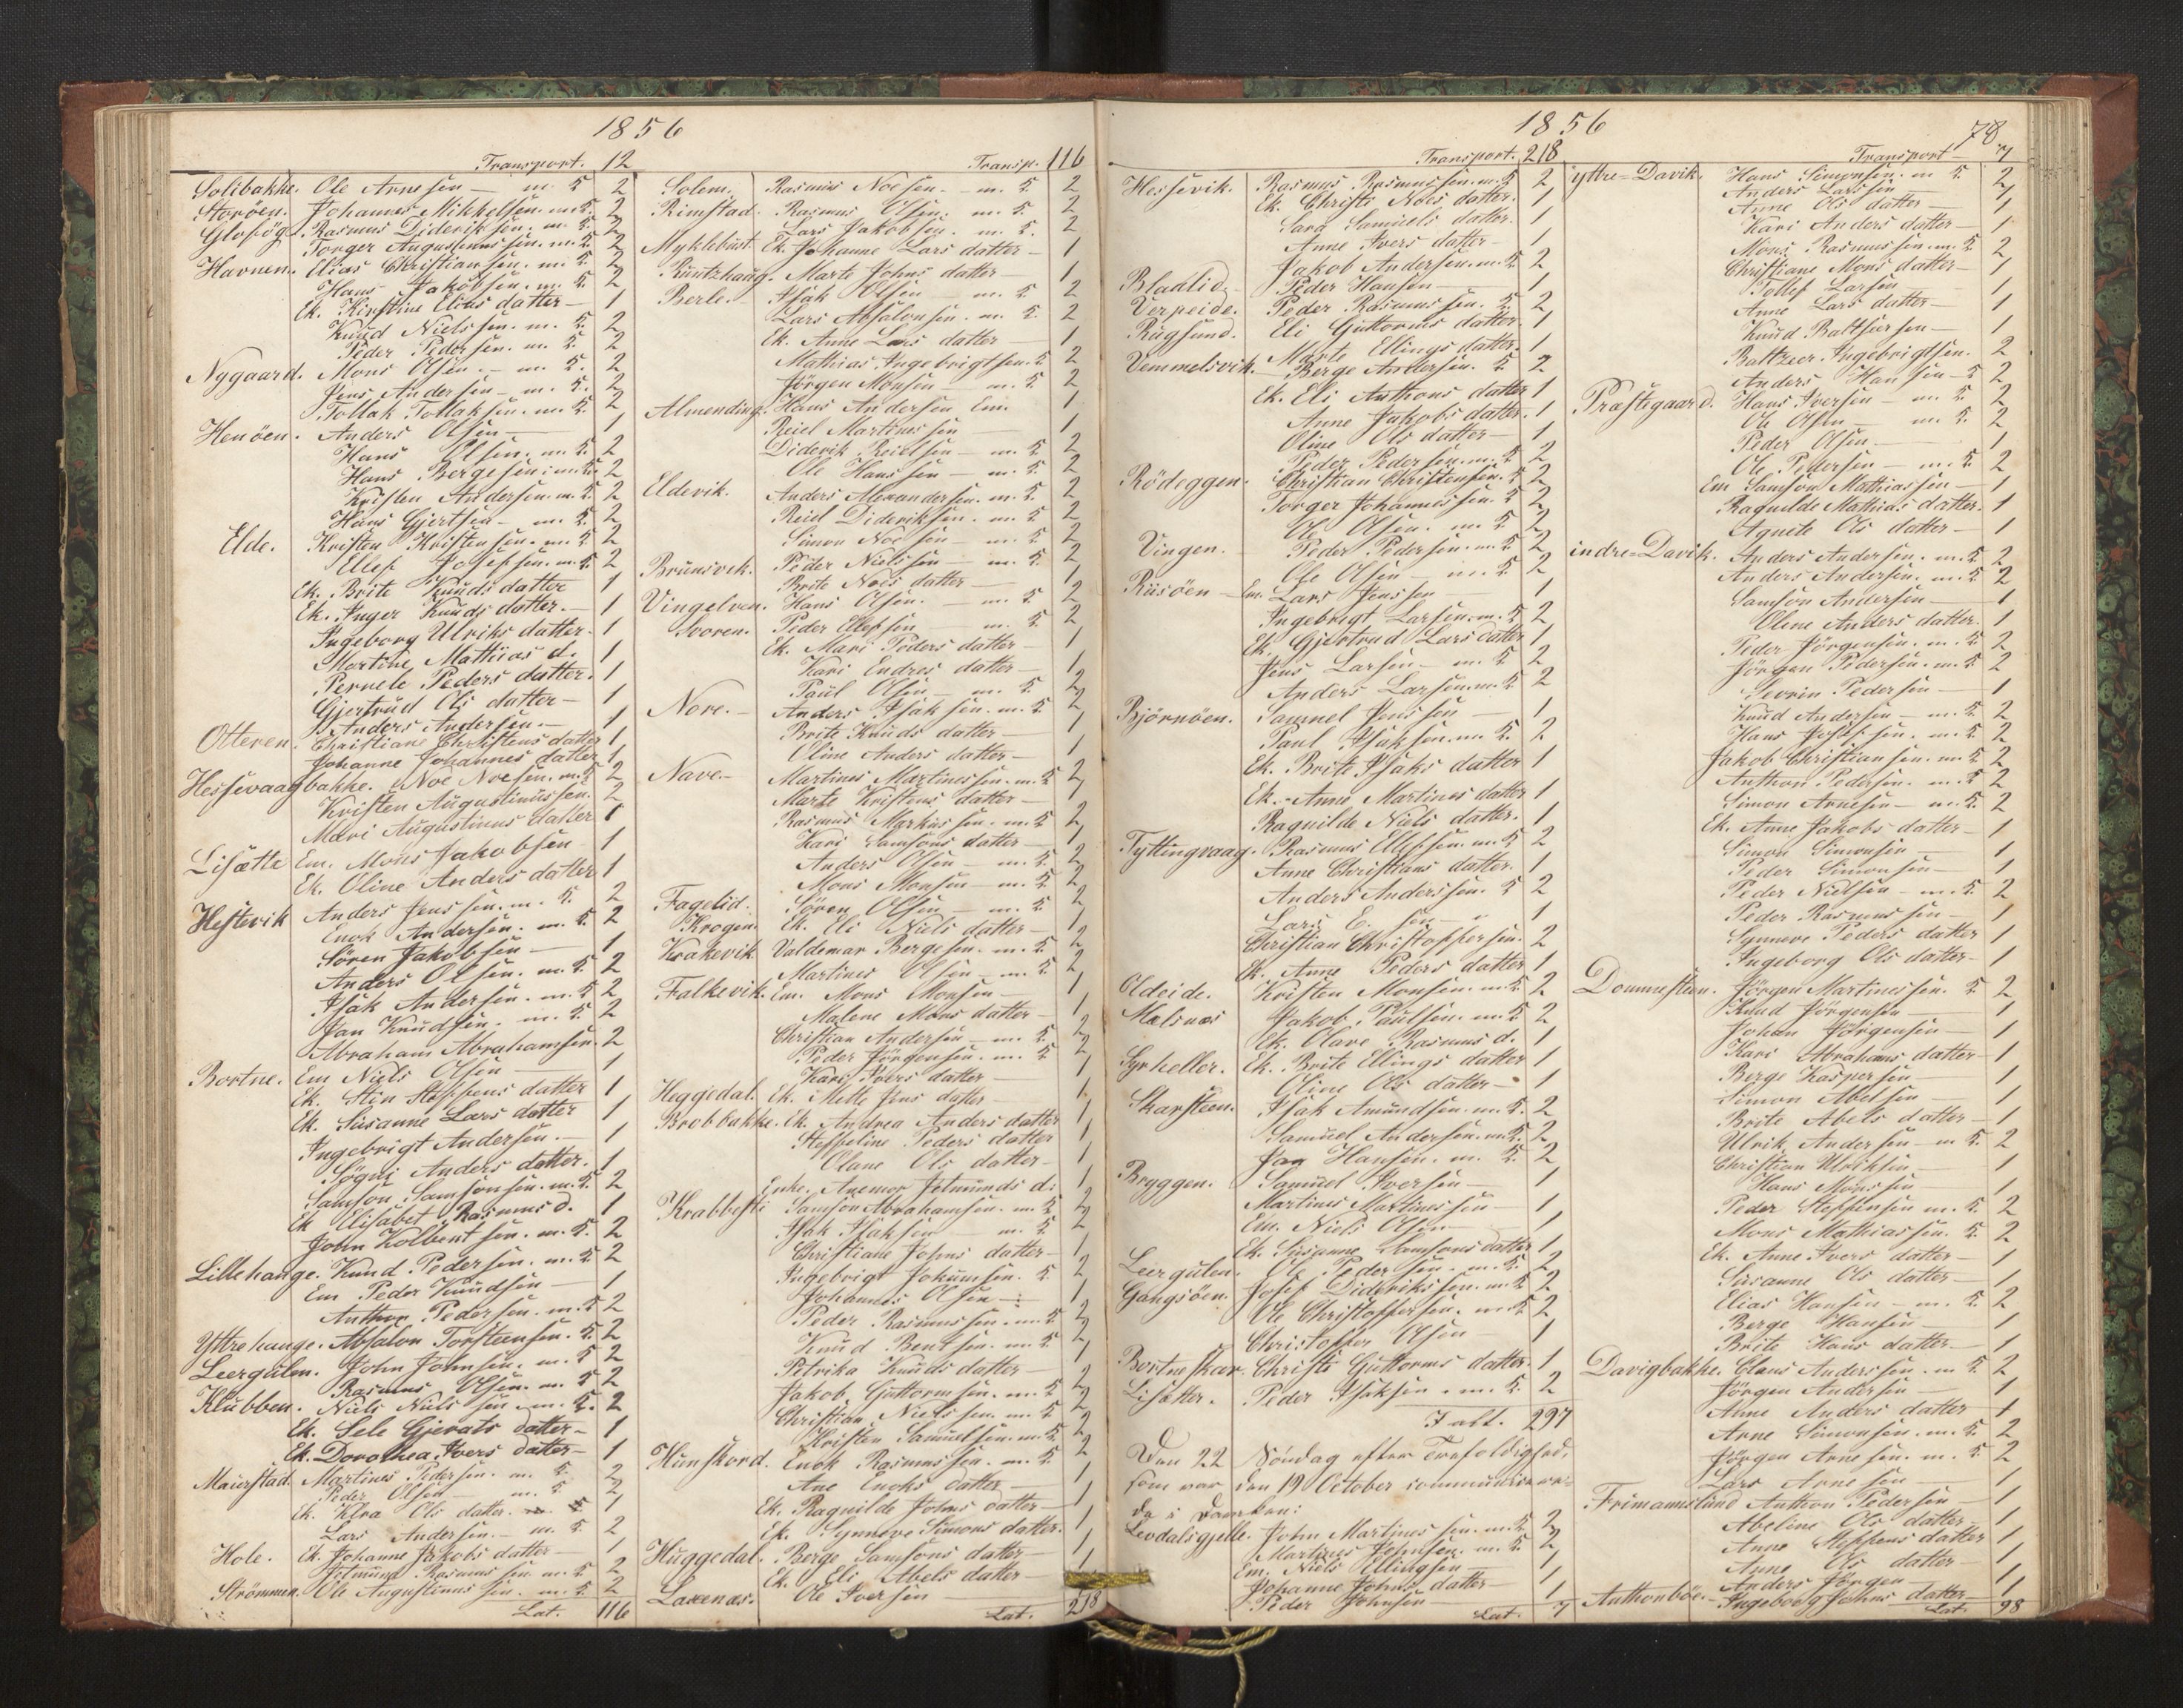 1856
Transport. 12
Solibakke. Ole Arnesen — m. K 2
Storöen. Johannes Mikkelsen. m. K. 2
Rasmus Dideriksen. m. K. 2
Torger Augustinussen. m. K. 2
Havnen. Elias Christiansen. m. K. 2
Hans Jakobsen. m. K. 2
Ek. Kirstine Elias datter — 1
Knud Nielssen. m. K. 2
Peder Pedersen. m. K. 2
Nygaard. Mons Olsen. — m. K. 2
Jens Andersen — m. K. 2
Tollak Tollaksen. m. K. 2
Henöen. Anders Olsen — 1
Hans Olsen. m. K. 2
Hans Bergesen. m. K. 2
Kristen Andersen. m. K. 2
Hans Gjertsen — m. K. 2
Elde. Kristen Kristensen. m. K. 2
Ellef Josefsen. m. K. 2
Ek. Brite Knuds datter 1
Ek. Inger Knuds datter. — 1
Ingeborg Ulriks datter. 1
Martine Mathias d. 1
Pernele Peders datter. 1
Gjertrud Ols datter — 1
Anders Andersen. — 1
Otteren. Christiane Christens datter 1
Johanne Johannes datter 1
Hessevaagbakke. Noe Noesen. m. K. 2
Kristen Augustinussen. 2
Mari Augustinus datter 1
Lisætte Em. Mons Jakobsen 1
Ek. Oline Anders datter 1
Hestevik Anders Jenssen. m. K. 2
Enok Andersen. m. K. 2
Sören Jakobsen — 1
Anders Olsen. m. K. 2
Isak Andersen. m. K. 2
Jan Knudsen. m. K. 2
Abraham Abrahamsen. 2
Bortne. Em Niels Olsen — 1
Ek. Stin Steffens datter 1
Ek. Susanne Lars datter 1
Ingebrigt Andersen. — 1
Anders datter. 1
Samson Samsonsen. m. K. 2
Ek Elisabet Rasmus d. 1
John Kolbentsen. m. K. 2
Lillehauge. Knud Pedersen. m. K. 2
Em Peder Knudsen — 1
Anthon Pedersen. m. K. 2
Yttrehauge. Absalon Torsteensen. K. 2
Leergulen. John Johnsen. m. K. 2
Rasmus Olsen. m. K. 2
Klubben. Niels Nielssen. m. K. 2
Ek. Sele Gjerats datter — 1
Ek. Dorothea Ivers datter — 1
Maurstad. Martines Pedersen. m. K. 2
Peder Olsen m. K. 2
Ek. Klra Ols datter. 1
Lars Andersen. — m. K. 2
Hole. Ek. Johanne Jakobs datter — 1
Jetmund Rasmussen m. K. 2
Strömmen. Ole Augustinussen. m. K. 2
Lat. 116
Transp. 116
Solem. Rasmus Noesen. m. K. 2
Rimstad. Rasmus Olsen. m. K. 2
Lars Jakobsen. m. K. 2
Myklebust. Ek. Johanne Lars datter — 1
Kuntzhaug. Marte Johns datter — 1
Berle. Isak Olsen — m. K. 2
Lars Absalonsen. m. K. 2
Ek. Anne Lars datter — 1
Mathias Ingebrigtsen. K 2
Jörgen Monsen — m. K 2
Almending. Hans Andersen Em. 1
Reiel Martinussen — 1
Diderik Reielsen — m. K. 2
Ole Hanssen — m. K. 2
Eldevik. Anders Alexandersen. m. K. 2
Reiel Dideriksen. m. K. 2
Simon Noesen — m. K. 2
Brunsvek. Peder Nielssen — m. K. 2
Brite Noes datter — 1
Vingelven. Hans Olsen. — m. K. 2
Svoren. Peder Ellefsen — m. K. 2
Ek. Mari Peders datter — 1
Kari Endres datter — 1
Paul Olsen — m. K. 2
Nore. — Anders Isaksen. m. K. 2
Brite Knuds datter — 1
Oline Anders datter — 1
Nave. — Martines Martinessen. m. K. 2
Marte Kristens datter — 1
Rasmus Markussen. m. K. 2
Kari Samsons datter — 1
Anders Olsen — m. K. 2
Mons Monsen — m. K. 2
Fagelid. Sören Olsen — m. K. 2
Krogen. Ek. Eli Niels datter — 1
Krakevik. Valdemar Bergesen. m. K. 2
Martines Olsen — m. K. 2
Falkevik. Em. Mons Monsen — 1
Malene Mons datter — 1
Christian Andersen — m. K. 2
Peder Jörgensen. m. K. 2
Kari Ivers datter — 1
Heggedal. Ek. Mette Jens datter — 1
Brobbakke. Ek. Andrea Anders datter 1
Steffeline Peders datter 1
Olane Ols datter — 1
Enke. Anemor Jetmunds d. 1
Krabbesti Samson Abrahamsen. m. K. 2
Isak Isaksen — m. K. 2
Christiane Johns datter — 1
Ingebrigt Jokumsen. K. 2
Johannes Olsen — 1
Peder Rasmussen. m. K. 2
Knud Bentsen. m. K. 2
Petrika Knuds datter — 1
Jakob Guttormsen. m. K. 2
Christian Nielssen. m. K. 2
Kristen Samuelsen. m. K. 2
Hunskord. Enok Rasmussen. m. K. 2
Ane Enoks datter — 1
Ek. Ragnilde Johns datter — 1
Ek. Synneve Simons datter. 1
Huggedal. Berge Samsons datter — 1
Ek. Eli Abels datter — 1
Laxenæs. Ole Iversen 1
Lat. 218
1856
78
Transport. 218
Hessevik. Rasmus Rasmussen. m. K. 2
Ek. Christi Noes datter. 1
Sara Samuels datter. 1
Anne Ivers datter — 1
Jakob Andersen. m. K. 2
Bladlid. Peder Hansen — 1
Verpeide. Peder Rasmussen. K. 2
Rugsund. Eli Guttorms datter. 1
Marte Ellings datter. 1
Vemmelsvik. — Berge Andersen. K 2
Ek. Eli Anthons datter 1
Anne Jakobs datter. 1
Oline Ols datter — 1
Peder Pedersen. m. K. 2
Rödeggen. Christian Christensen. K 2
Torger Johannessen. K 2
Ole Olsen. m. K. 2
Vingen. Peder Pedersen. m. K. 2
Ole Olsen — m. K. 2
Risöen — Em. Lars Jenssen 1
Ingebrigt Larsen. m. K. 2
Ek. Gjertrud Lars datter 1
Jens Larsen — m. K. 2
Anders Larsen. m. K. 2
Björnöen. Samuel Jenssen — 1
Paul Isaksen. m. K. 2
Ek. Brite Isaks datter 1
Ek. Anne Martines datter 1
Ragnilde Niels datter. 1
Tyttingvaag. Rasmus Ellefsen. m. K. 2
Anne Christians datter. 1
Anders Anderssen. K 2
Lars E. sen — 1
Christian Christoffersen. 2
Ek. Anne Peders datter 1
Oldeide. Kristen Monsen. m. K. 2
Mælsnæs Jakob Paulsen. m. K. 2
Ek. Olave Rasmus d. 1
Syrheller. Ek. Brite Ellings datter 1
Oline Ols datter — 1
Skarsteen. Isak Amundsen. m. K. 2
Samuel Andersen. m. K. 2
Jan Hansen. m. K. 2
Bryggen. Samuel Iversen — 1
Martines Martinessen — 1
Em. Niels Olsen 1
Ek. Susanne Samsons datter 1
Leergulen. Ole Pedersen. m. K. 2
Gangsöen. Josef Dideriksen. m. K. 2
Ole Christoffersen. m. K. 2
Christoffer Olsen — 1
Bortneskar. Christi Guttorms datter. 1
Lisætter. Peder Isaksen. m. K. 2
I alt. 297
Den 22 Söndag efter Trefoldighed,
som var den 19 October communicere-
de i Daviken:
Levdalsgjelle. John Martinessen. m. K. 2
Martines Johnsen. m. K. 2
Em. Niels Ellingsen — 1
Johanne Johns datter — 1
Peder Johnsen — 1
Lat. 7
Transport — 7
yttre=Davik. Hans Simonsen. m K. 2
Anders Larssen — 1
Anne Ols datter — 1
Kari Anders datter — 1
Mons Rasmussen. m. K. 2
Christiane Mons datter — 1
Tollef Larsen — 1
Anne Lars datter — 1
Knud Baltsersen — 1
Baltzeer Ingebrigtsen. 2
Anders Hansen — K 2
Præstegaard. Hans Iversen — m. K. 2
Ole Olsen — m. K. 2
Peder Olsen — 1
Ole Pedersen — m. K. 2
Em Samson Mathiassen — 1
Ragnilde Mathias datter. 1
Agnete Ols datter — 1
indre=Davik. Anders Andersen. m. K. 2
Anders Andersen. m. K. 2
Samson Andersen — 1
Oline Anders datter. 1
Peder Jörgensen. m. K. 2
Jörgen Pedersen. m. K. 2
Sevrin Pedersen — 1
Knud Andersen — m. K. 2
Hans Josefsen. m. K. 2
Jakob Christiansen. m. K. 2
Anthon Pedersen. m. K. 2
Simon Arnesen — m. K. 2
Ek. Anne Jakobs datter — 1
Simon Simonsen — 1
Peder Simonsen — 1
Peder Nielsen — m. K. 2
Peder Rasmussen — 1
Synneve Peders datter 1
Ingeborg Ols datter — 1
Dommesteen. Jörgen Martinessen. K 2
Knud Jörgensen — 1
Johan Jörgensen — 1
Kari Abrahams datter — 1
Berge Kaspersen — 1
Simon Abelsen — 1
Brite Abels datter — 1
Ulrik Andersen — m. K. 2
Christian Ulriksen — 1
Hans Monssen — 1
Peder Steffensen m. K. 2
Mons Mathiassen. K. 2
Ek. Anne Ivers datter — 1
Susanne Ols datter — 1
Elias Hansen — m. K. 2
Berge Hansen — 1
Brite Hans datter — 1
Davigbakke. Claus Anderssen. m K. 2
Jörgen Andersen — 1
Anne Anders datter 1
Arne Simonsen. m. K. 2
Jörgen Arnesen. m. K. 2
Lars Arnesen — 1
Frimannslund Anthon Pedersen — 1
Abeline Ols datter — 1
Anne Steffens datter 1
Anne Ols datter — 1
Anders Jörgen 1
Anthonböe. — Ingeborg Johns datter — 1
Lat. 98